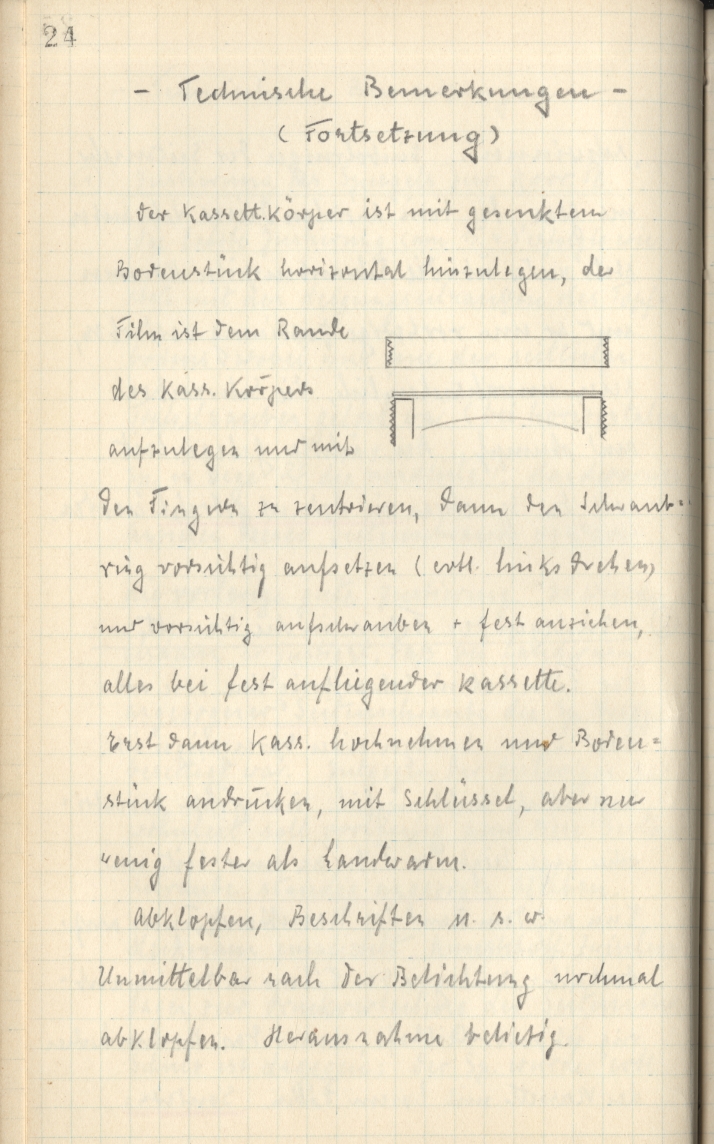 24
- Technische Bemerkungen -
(Fortsetzung)
der Kassett.Körper ist mit gesenktem
Bodenstück horizontal hinzulegen, der
Film ist dem Rande
des Kass. Körpers
aufzulegen und mit
den Fingern zu zentrieren, dann den Schraub=
ring vorsichtig aufsetzen (evtl. links drehen)
und vorsichtig aufschrauben + fest anziehen,
alles bei fest aufliegender Kassette.
Erst dann Kass. hochnehmen und Boden=
stück andrücken, mit Schlüssel, aber nur
wenig fester als handwarm.
Abklopfen, Beschriften u. s. w.
Unmittelbar nach der Belichtung nochmal
abklopfen. Herausnahme beliebig.